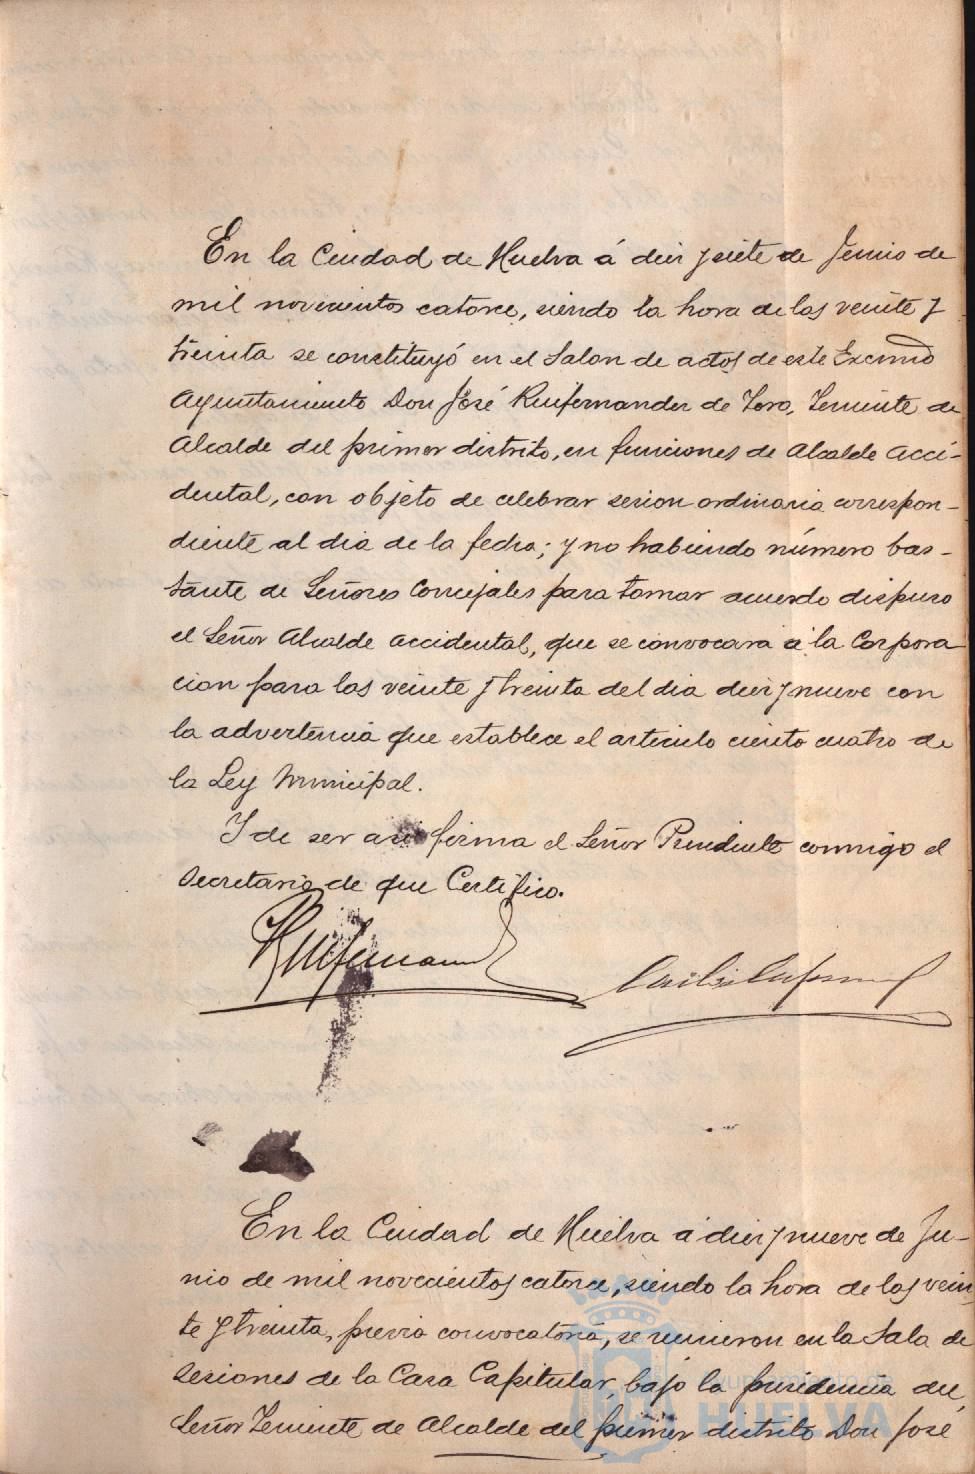 En la Ciudad de Huelva á diez y siete de Junio de
mil novecientos catorce, siendo la hora de las veinte y
treinta se constituyó en el Salon de actos de este Excmo
Ayuntamiento Don José Ruifernandez de Toro, Teniente de
Alcalde del primer distrito, en funciones de Alcalde Acci-
dental, con objeto de celebrar sesion ordinaria correspon-
diente al dia de la fecha; y no habiendo número bas-
tante de Señores Concejales para tomar acuerdo dispuso
el Señor Alcalde accidental, que se convocara á la Corpora
cion para las veinte y treinta del dia diez y nueve con
la advertencia que establece el articulo ciento cuatro de
la Ley Municipal.
Y de ser asi firma el Señor Presidente conmigo el
Secretario de que Certifico.
En la Ciudad de Huelva á diez y nueve de Ju-
nio de mil novecientos catorce, siendo la hora de las vein-
te y treinta, previa convocatoria, se reunieron en la Sala de
sesiones de la Casa Capitular, bajo la presidencia del
Señor Teniente de Alcalde del primer distrito Don José
Ayuntamiento de
HUELVA